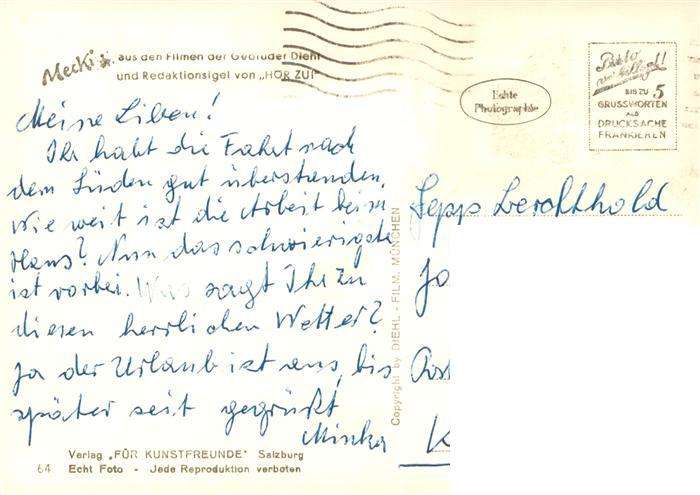 Mecki, aus den Filmen der Gebrüder Diehl
und Redaktionsigel von „HÖR ZU!"
Echte
Photographie
BIS ZU 5
GRUSSWORTEN
ALS
DRUCKSACHE
FRANKIEREN
Meine Lieben!
Ihr habt die Fahrt nach
dem Süden gut überstanden.
Wie weit ist die Arbeit beim
Haus? Nun das schwierigste
ist vorbei. Was sagt Ihr zu
diesen herrlichen Wetter?
Ja der Urlaub ist aus, bis
später seit gegrüßt
Minka
Sepp Berchthold
Jo
Post
K
Copyright by DIEHL - FILM. MÜNCHEN
Verlag „FÜR KUNSTFREUNDE" Salzburg
64 Echt Foto - Jede Reproduktion verboten